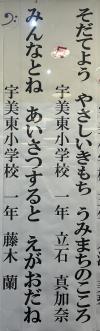 そだてよう やさしいきもち うみまちのこころ
宇美東小学校 一年 立石 真加奈
みんなとね あいさつすると えがおだね
宇美東小学校 一年 藤木 蘭